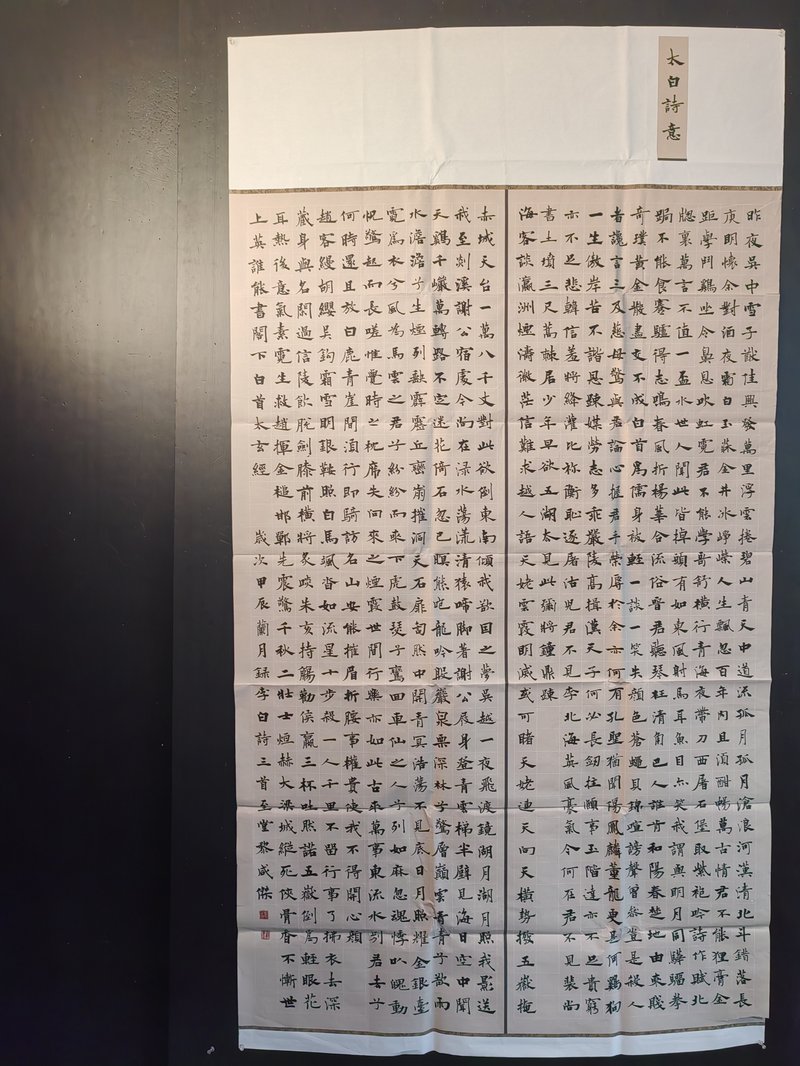 太白詩意
昨夜吳中雪子猷佳興發萬里浮雲捲碧山青天中道流孤月孤月滄浪河漢清北斗錯落長
庚明懷余對酒夜霜白玉牀金井冰崢嶸人生飄忽百年內且須酣暢萬古情君不能狸膏金
距學鬥鷄坐令鼻息吹虹霓君不能學哥舒橫行青海夜帶刀西屠石堡取紫袍吟詩作賦北
牕裏萬言不值一盃水世人聞此皆掉頭有如東風射馬耳魚目亦笑我謂與明月同驊騮拳
跼不能食蹇驢得志鳴春風折楊華合流俗晉君聽琴枉清角巴人誰肯和陽春楚地由來賤
奇璞黃金散盡交不成白首為儒身被輕一談一笑失顏色蒼蠅貝錦喧謗聲曾參豈是殺人
者讒言三及慈母驚與君論心握君手榮辱於余亦何有孔聖猶聞傷鳳麟董龍更是何鷄狗
一生傲岸苦不諧恩疎媒勞志多乖嚴陵高揖漢天子何必長劒拄頤事玉階達亦不足貴窮
亦不足悲韓信羞將絳灌比祢衡恥逐屠沽兒君不見李北海英風豪氣今何在君不見裴尚
書土墳三尺蒿棘居少年早欲五湖去見此彌將鐘鼎疎
海客談瀛洲煙濤微茫信難求越人語天姥雲霞明滅或可睹天姥連天向天橫勢拔五嶽掩
赤城天台一萬八千丈對此欲倒東南傾我欲因之夢吳越一夜飛渡鏡湖月湖月照我影送
我至剡溪謝公宿處今尚在淥水蕩漾清猿啼脚著謝公屐身登青雲梯半壁見海日空中聞
天鷄千巖萬轉路不定迷花倚石忽已暝熊咆龍吟殷巖泉栗深林兮驚層巔雲青青兮欲雨
水澹澹兮生煙列缺霹靂丘巒崩摧洞天石扉訇然中開青冥浩蕩不見底日月照耀金銀臺
霓為衣兮風為馬雲之君兮紛紛而來下虎鼓瑟兮鸞回車仙之人兮列如麻忽魂悸以魄動
怳驚起而長嗟惟覺時之枕席失向來之煙霞世間行樂亦如此古來萬事東流水別君去兮
何時還且放白鹿青崖間須行即騎訪名山安能摧眉折腰事權貴使我不得開心顏
趙客縵胡纓吳鈎霜雪明銀鞍照白馬颯沓如流星十步殺一人千里不留行事了拂衣去深
藏身與名閑過信陵飲脫劍膝前橫將炙啖朱亥持觴勸侯嬴三杯吐然諾五嶽倒為輕眼花
耳熱後意氣素霓生救趙揮金槌邯鄲先震驚千秋二壯士烜赫大梁城縱死俠骨香不慚世
上英誰能書閣下白首太玄經 歲次甲辰蘭月錄李白詩三首至堂黎成傑